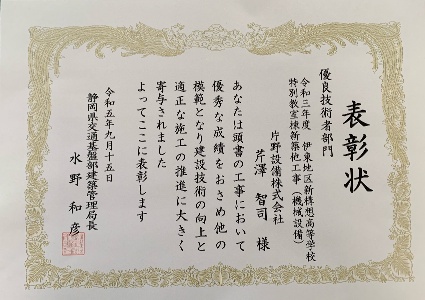 表彰状
優良技術者部門
令和三年度 伊東地区新構想高等学校
特別教室棟新築他工事(機械設備)
片野設備株式会社
芹澤 智司 様
あなたは頭書の工事において
優秀な成績をおさめ他の
模範となり建設技術の向上と
適正な施工の推進に大きく
寄与されました
よってここに表彰します
令和五年九月十五日
静岡県交通基盤部建築管理局長
水野 和彦